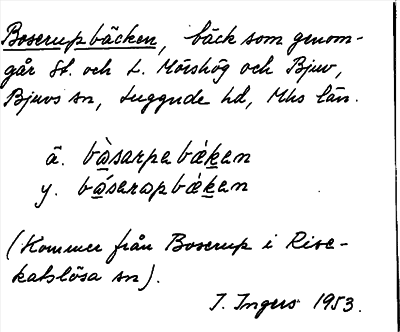 Boserupbäcken, bäck som genom-
går St. och L. Mörshög och Bjuv,
Bjuvs sn, Luggude hd, Mhs län.
ä. bàsarpabǽken
y. báserəpbǽken
(Kommer från Boserup i Rise-
katslösa sn).
I. Ingers 1953.